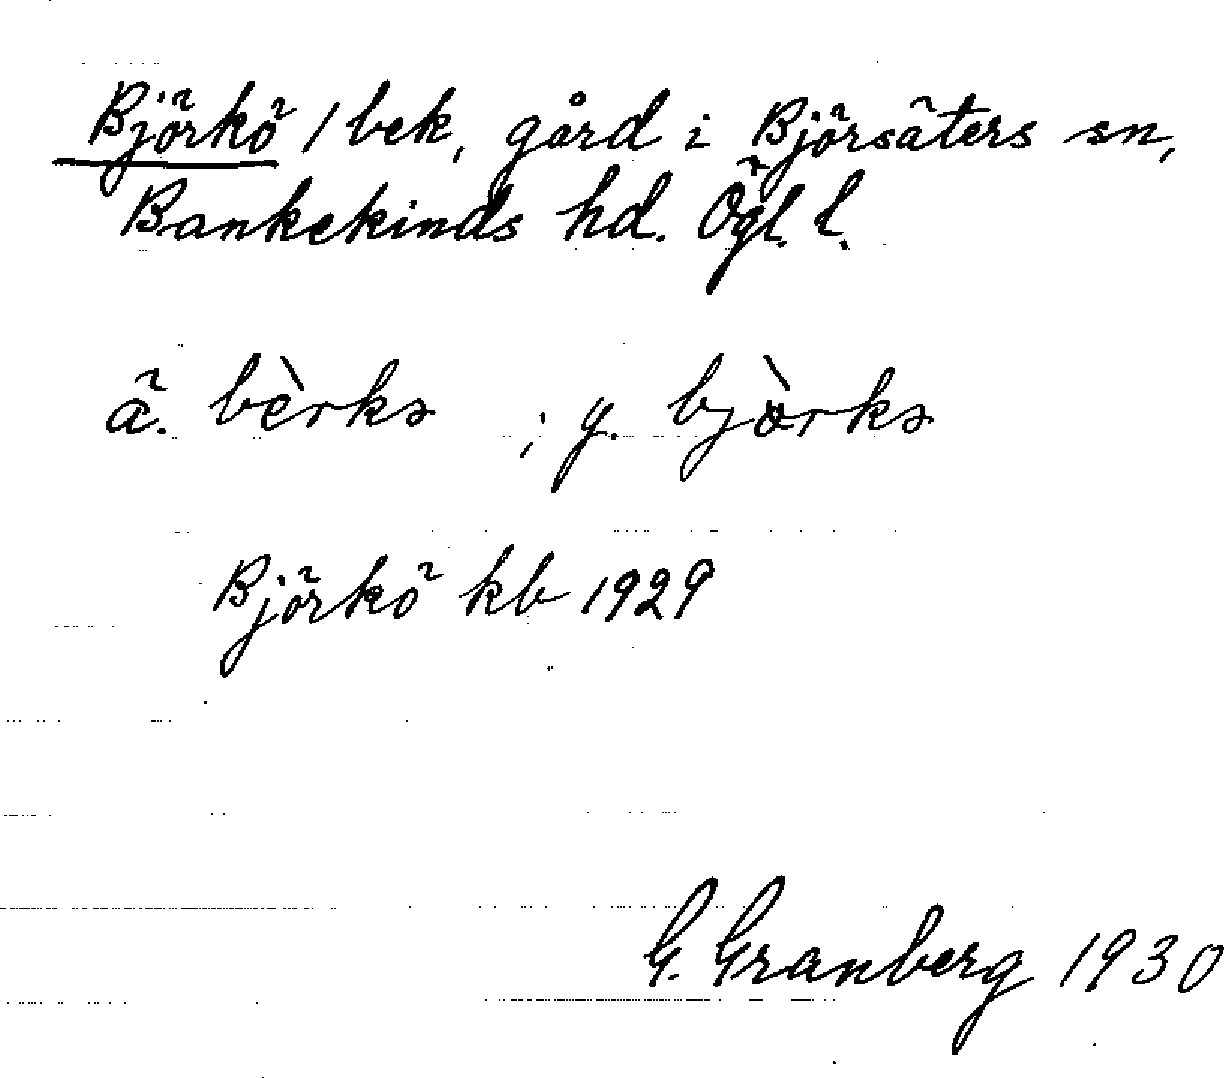 Björkö / bek, gård i Björsäters sn,
Bankekinds hd. Ögl. l.
ä. bèrkə ; y. bjòrkə
Björkö kb 1929
G. Granberg 1930